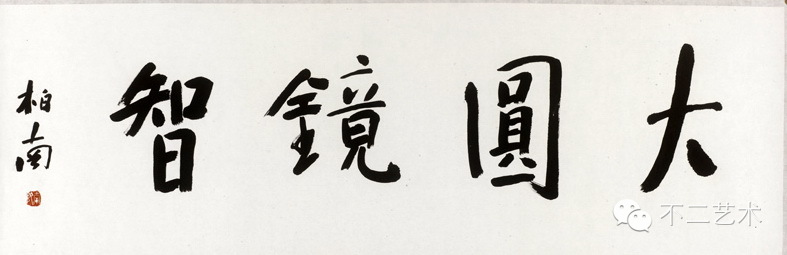 大圓鏡智
柏南
不二艺术